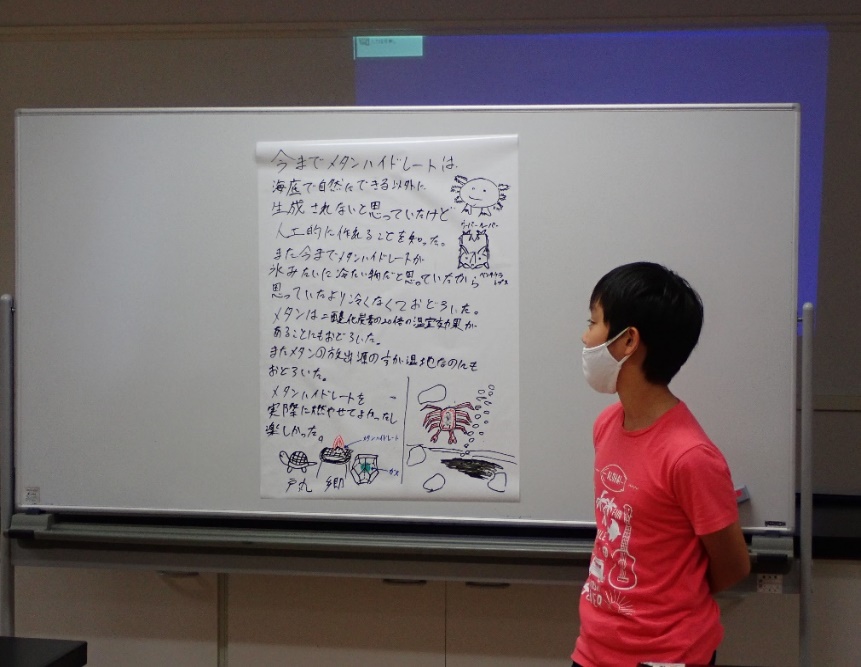 今までメタンハイドレートは、
海底で自然にできる以外に
生成されないと思っていたけど
人工的に作れることを知った。
また今までメタンハイドレートが
氷みたいに冷たい物だと思っていたから
思っていたより冷くなくておどろいた。
メタンは二酸化炭素の20倍の温室効果が
あることにもおどろいた。
またメタンの放出源の今が湿地なのにも
おどろいた。
メタンハイドレートを
実際に燃やせてよかったし
楽しかった。
ウーパールーパー
メタンハイドレート
ガス
戸丸 郷
ALOHA!